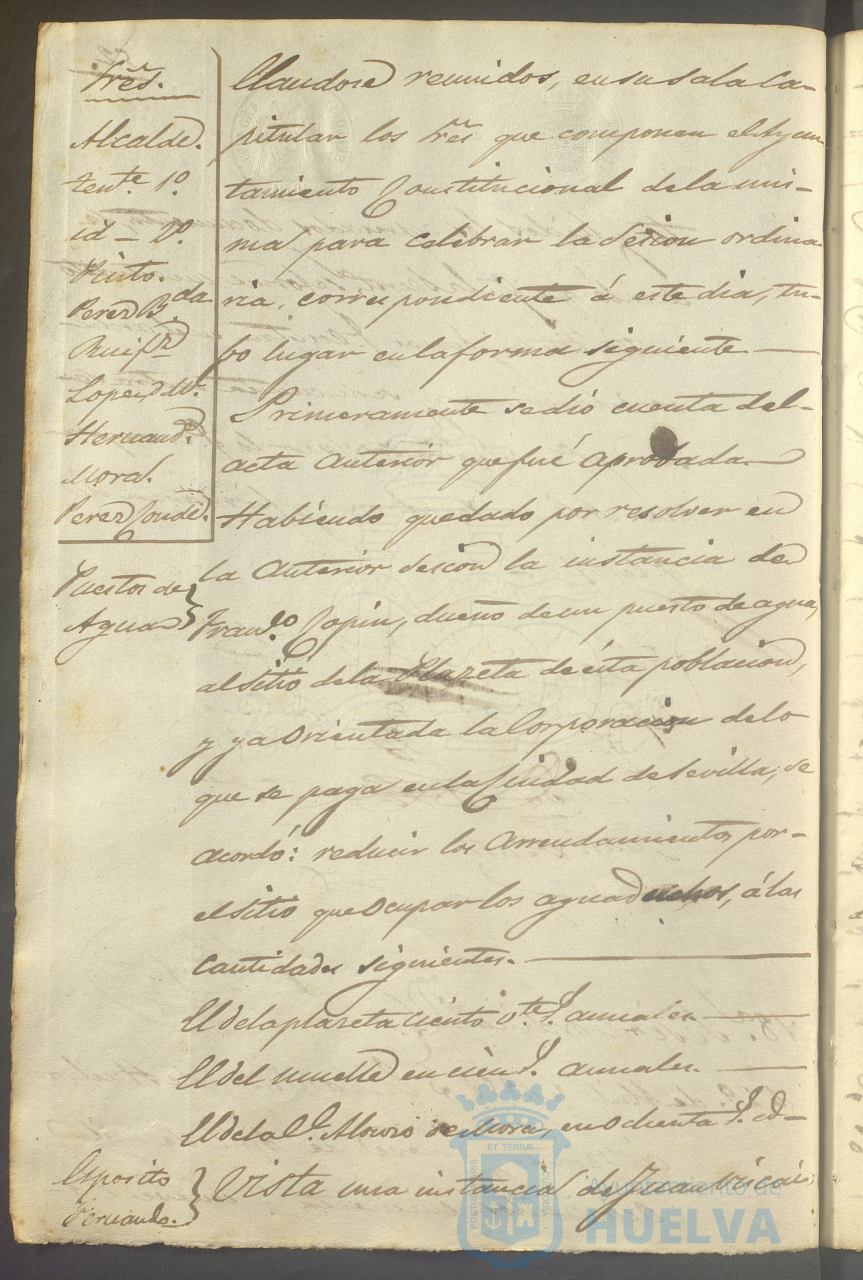 Sres.
Alcalde.
Tente. 1º.
id - 2º.
Pinto.
Perez B.da
Ruifz
Lopez M.
Hernandz.
Moral.
Perez Conde.
Hallandose reunidos, en su sala Ca-
pitular los Sres que componen el Ayun-
tamiento Constitucional de la mis-
ma para celebrar la Sesion ordina-
ria, correspondiente á este dia, tu-
bo lugar en la forma siguiente
Primeramente se dió cuenta del-
acta anterior que fué aprobada.
Puestos de
Agua
Habiendo quedado por resolver en
la anterior sesion la instancia de
Franco. Capin, dueño de un puesto de agua,
al sitio de la Plazeta de ésta poblacion,
y ya orientada la Corporacion de lo
que se paga en la Ciudad de Sevilla, se
acordó: reducir los arrendamientos por-
el sitio que ocupan los aguaduchos, á las
cantidades siguientes.
El de la plazeta ciento vte. r. anuales.
El del muelle en cien r. anuales.
El de la Ce. Alonso de Mora, en ochenta r. id-
Esposito
Fernando.
Vista una instancia de Juan
Ayuntamiento de
HUELVA